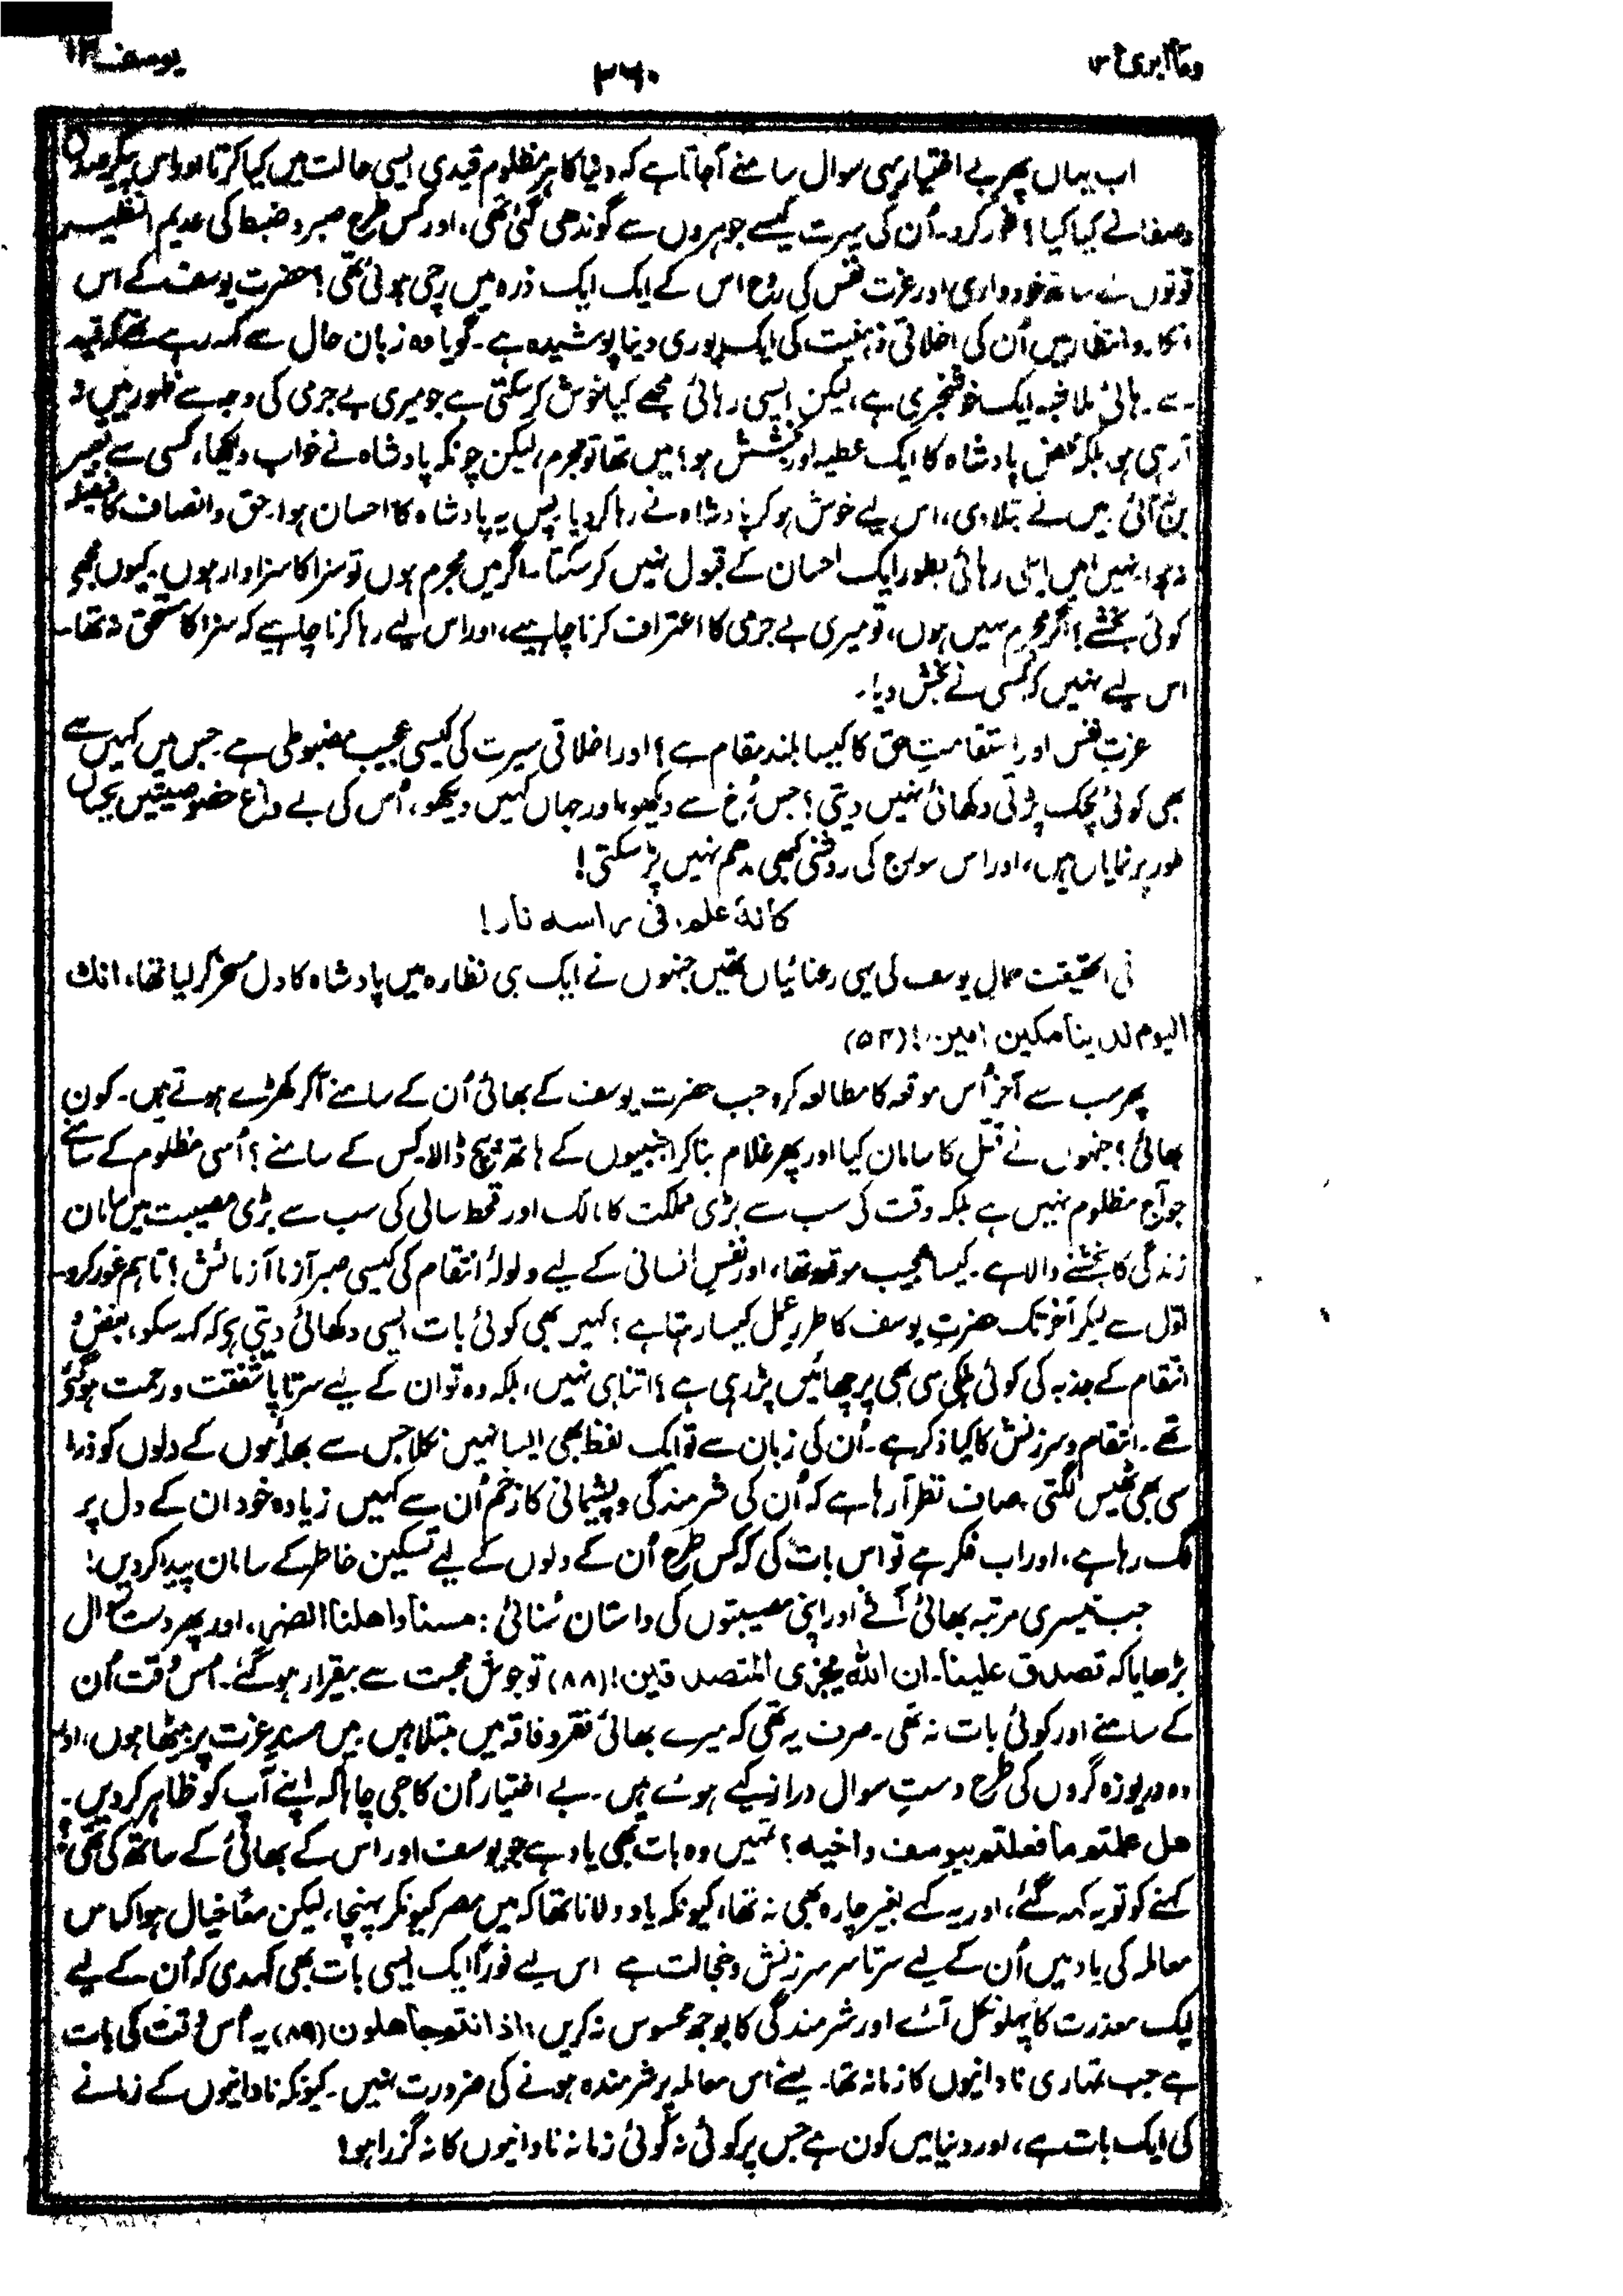 وما ابری ۱۳
۳۶۰
یوسف ۱۲
اب یہاں پھر بے اختیار یہی سوال سامنے آ جاتا ہے کہ دنیا کا ہر مظلوم قیدی ایسی حالت میں کیا کرتا اور اس پیکر صدق
وصفا نے کیا کیا؟ غور کرو۔ اُن کی سیرت کیسے جوہروں سے گوندھی گئی تھی، اور کس طرح صبر و ضبط کی عدیم النظیر
قوتوں کے ساتھ خودداری اور عزت نفس کی روح اس کے ایک ایک ذرہ میں رچی ہوئی تھی؟ حضرت یوسف کے اس
انکار و انتظار میں اُن کی اخلاقی ذہنیت کی ایک پوری دنیا پوشیدہ ہے۔ گویا وہ زبان حال سے کہہ رہے تھے کہ قید
سے رہائی بلاشبہ ایک خوشخبری ہے، لیکن ایسی رہائی مجھے کیا خوش کر سکتی ہے جو میری بے جرمی کی وجہ سے ظہور میں نہ
آ رہی ہو بلکہ محض پادشاہ کا ایک عطیہ اور بخشش ہو؟ میں تھا تو مجرم، لیکن چونکہ پادشاہ نے خواب دیکھا، کسی سے تعبیر
بن نہ آئی، میں نے بتلا دی، اس لیے خوش ہو کر پادشاہ نے رہا کر دیا پس یہ پادشاہ کا احسان ہوا۔ حق و انصاف کا فیصلہ
نہ ہوا۔ نہیں میں ایسی رہائی بطور ایک احسان کے قبول نہیں کر سکتا۔ اگر میں مجرم ہوں تو سزا کا سزاوار ہوں۔ کیوں مجھے
کوئی بخشے؟ اگر مجرم نہیں ہوں، تو میری بے جرمی کا اعتراف کرنا چاہیے، اور اس لیے رہا کرنا چاہیے کہ سزا کا مستحق نہ تھا۔
اس لیے نہیں کہ کسی نے بخش دیا۔
عزتِ نفس اور استقامتِ حق کا کیسا بلند مقام ہے؟ اور اخلاقی سیرت کی کیسی عجیب مضبوطی ہے جس میں کہیں سے
بھی کوئی لچک پڑتی دکھائی نہیں دیتی؟ جس رُخ سے دیکھو، اور جہاں کہیں دیکھو، اُس کی بے داغ خصوصیتیں یکساں
طور پر نمایاں ہیں، اور اس سورج کی روشنی کبھی مدھم نہیں پڑ سکتی!
کانہٗ علم، فی راسہ نار!
فی الحقیقت جمالِ یوسف کی یہی رعنائیاں تھیں جنہوں نے ایک ہی نظارہ میں پادشاہ کا دل مسخر کر لیا تھا، انک
الیوم لدینا مکین امین! (۵۴)
پھر سب سے آخر اُس موقعہ کا مطالعہ کرو جب حضرت یوسف کے بھائی اُن کے سامنے آ کر کھڑے ہوتے ہیں۔ کون
بھائی؟ جنہوں نے قتل کا سامان کیا اور پھر غلام بنا کر اجنبیوں کے ہاتھ بیچ ڈالا۔ کس کے سامنے؟ اُسی مظلوم کے سامنے
جو آج مظلوم نہیں ہے بلکہ وقت کی سب سے بڑی مملکت کا مالک اور قحط سالی کی سب سے بڑی مصیبت میں سامانِ
زندگی کا بخشنے والا ہے۔ کیسا عجیب موقعہ تھا، اور نفسِ انسانی کے لیے ولولۂ انتقام کی کیسی صبر آزما آزمائش؟ تاہم غور کرو
اول سے لیکر آخر تک حضرتِ یوسف کا طرزِ عمل کیسا رہتا ہے؟ کہیں بھی کوئی بات ایسی دکھائی دیتی ہے کہ کہہ سکو، بغض و
انتقام کے جذبہ کی کوئی ہلکی سی بھی پرچھائیں پڑ رہی ہے؟ اتنا ہی نہیں، بلکہ وہ تو ان کے لیے سرتاپا شفقت و رحمت ہو گئے
تھے۔ انتقام و سرزنش کا کیا ذکر ہے۔ اُن کی زبان سے تو ایک لفظ بھی ایسا نہیں نکلا جس سے بھائیوں کے دلوں کو ذرا
سی بھی ٹھیس لگتی۔ صاف نظر آ رہا ہے کہ اُن کی شرمندگی و پشیمانی کا زخم اُن سے کہیں زیادہ خود ان کے دل پر
لگ رہا ہے، اور اب فکر ہے تو اس بات کی کہ کس طرح اُن کے دلوں کے لیے تسکین خاطر کے سامان پیدا کر دیں!
جب تیسری مرتبہ بھائی آئے اور اپنی مصیبتوں کی داستان سُنائی: مسنا واھلنا الضر، اور پھر دست سوال
بڑھایا کہ تصدق علینا۔ ان اللہ یجزی المتصدقین! (۸۸) تو جوشِ محبت سے بیقرار ہو گئے۔ اُس وقت اُن
کے سامنے اور کوئی بات نہ تھی۔ صرف یہ تھی کہ میرے بھائی فقر و فاقہ میں مبتلا ہیں۔ میں مسندِ عزت پر بیٹھا ہوں، اور
وہ دریوزہ گروں کی طرح دستِ سوال دراز کیے ہوئے ہیں۔ بے اختیار اُن کا جی چاہا کہ اپنے آپ کو ظاہر کر دیں۔
ھل علمتم ما فعلتم بیوسف واخیہ؟ تمہیں وہ بات بھی یاد ہے جو یوسف اور اس کے بھائی کے ساتھ کی تھی؟
کہنے کو تو یہ کہہ گئے، اور یہ کہے بغیر چارہ بھی نہ تھا، کیونکہ یاد دلانا تھا کہ میں مصر کیونکر پہنچا، لیکن معاً خیال ہوا کہ اس
معاملہ کی یاد میں اُن کے لیے سرتاسر سرزنش و خجالت ہے اس لیے فوراً ایک ایسی بات بھی کہدی کہ اُن کے لیے
ایک معذرت کا پہلو نکل آئے اور شرمندگی کا بوجھ محسوس نہ کریں، اذ انتم جاھلون (۸۹) یہ اُس وقت کی بات
ہے جب تمہاری نادانیوں کا زمانہ تھا۔ یعنے اس معاملہ پر شرمندہ ہونے کی ضرورت نہیں۔ کیونکہ نادانیوں کے زمانے
کی ایک بات ہے، اور دنیا میں کون ہے جس پر کوئی نہ کوئی زمانہ نادانیوں کا نہ گزرا ہو!